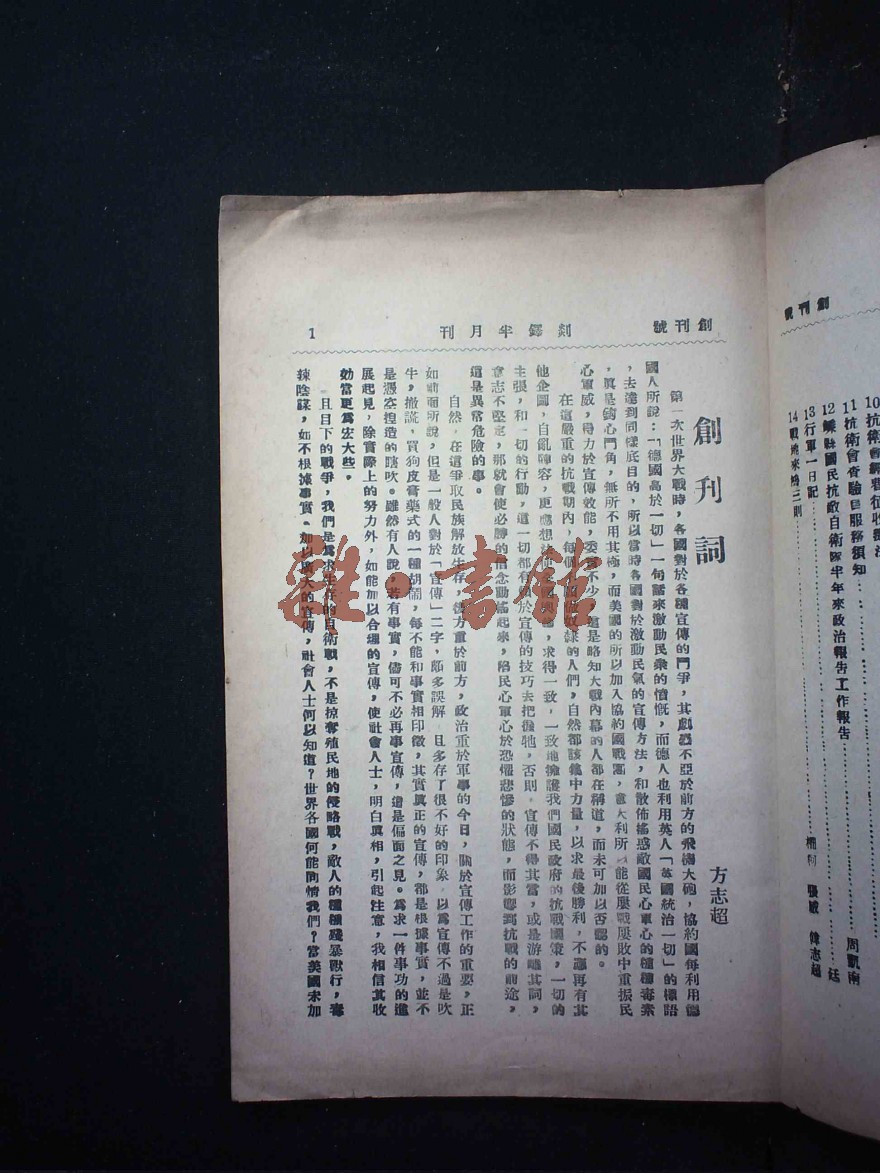 創刊號
剡鐸半月刊
1
創刊詞
方志超
第一次世界大戰時，各國對於各種宣傳的鬥爭，其劇烈不亞於前方的飛機大砲，協約國每利用德
國人所說：「德國高於一切」一句話來激動民衆的憤慨，而德人也利用英人「英國統治一切」的標語
，去達到同樣底目的，所以當時各國對於激動民氣的宣傳方法，和散佈搖惑敵國民心軍心的種種毒素
，眞是鈎心鬥角，無所不用其極，而美國的所以加入協約國戰團，意大利所以能從屢戰屢敗中重振民
心軍威，得力於宣傳效能，委實不少，這是略知大戰內幕的人都在稱道，而未可加以否認的。
在這嚴重的抗戰期內，每個不願做奴隸的人們，自然都該集中力量，以求最後勝利，不應再有其
他企圖，自亂陣容，更應想法使全國輿論，求得一致，一致地擁護我們國民政府的抗戰國策，一切的
主張，和一切的行動，這一切都有賴於宣傳的技巧去把握牠，否則，宣傳不得其當，或是游離其詞，
意志不堅定，那就會使必勝的信念動搖起來，陷民心軍心於恐慌悲慘的狀態，而影響到抗戰的前途，
這是異常危險的事。
自然，在這爭取民族解放生存，後方重於前方，政治重於軍事的今日，關於宣傳工作的重要，正
如前面所說，但是一般人對於「宣傳」二字，頗多誤解，且多存了很不好的印象，以爲宣傳不過是吹
牛，撒謊，買狗皮膏藥式的一種胡鬧，每不能和事實相印徵，其實眞正的宣傳，都是根據事實，並不
是憑空揑造的瞎吹。雖然有人說，若有事實，儘可不必再事宣傳，這是偏面之見。爲求一件事功的進
展起見，除實際上的努力外，如能加以合理的宣傳，使社會人士，明白眞相，引起注意，我相信其收
効當更爲宏大些。
且目下的戰爭，我們是爲求生存的自衛戰，不是掠奪殖民地的侵略戰，敵人的種種殘暴獸行，毒
辣陰謀，如不根據事實，加以廣大的宣傳，社會人士何以知道？世界各國何能同情我們？當美國未加
創刊號
11抗衛會查驗目服務須知……周凱南
12嵊縣國民抗敵自衛隊半年來政治報告工作報告……廷
13行軍一日記……
14戰地來鴻三則……
雜·書館